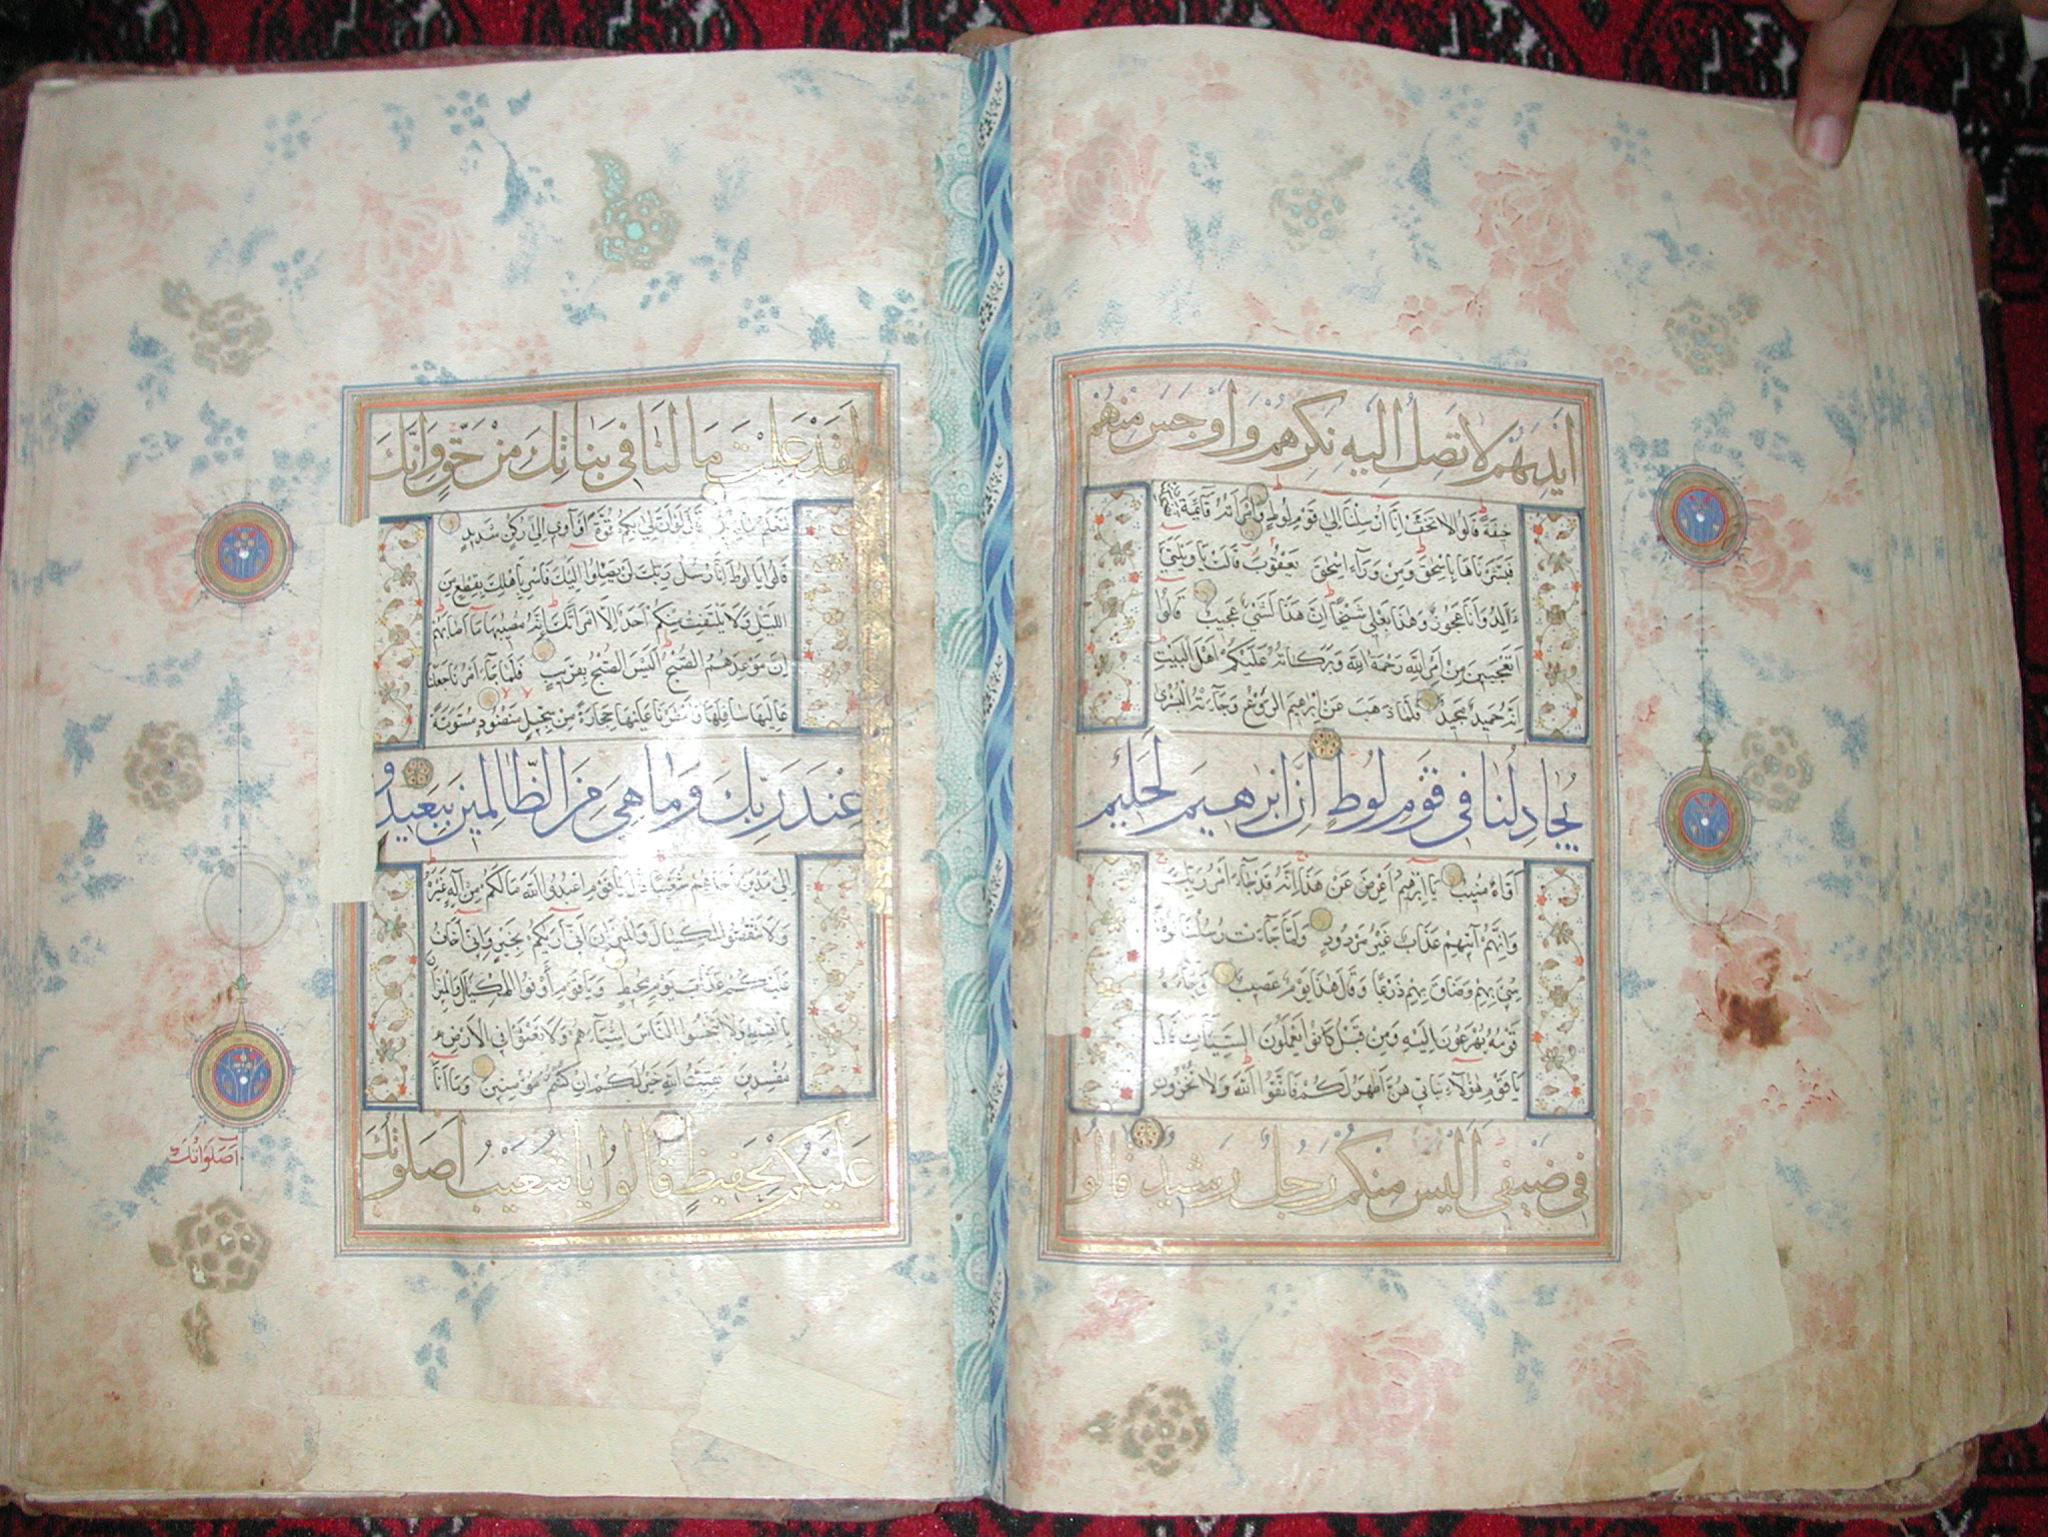 ايديهم لا تصل اليه نكرهم واوجس منهم
خيفة قالوا لا تخف انا ارسلنا الى قوم لوط وامرأته قآئمة
فبشرناها باسحق ومن ورآء اسحق يعقوب قالت يا ويلتى
ءالد وانا عجوز وهذا بعلى شيخا ان هذا لشئ عجيب قالوا
اتعجبين من امر الله رحمة الله وبركاته عليكم اهل البيت
انه حميد مجيد فلما ذهب عن ابرهيم الروع وجآءته البشرى
يجادلنا فى قوم لوط ان ابرهيم لحليم
اواه منيب يا ابرهيم اعرض عن هذا انه قد جآء امر ربك
وانهم آتيهم عذاب غير مردود ولما جآءت رسلنا لوطا
سئ بهم وضاق بهم ذرعا وقال هذا يوم عصيب وجآءه
قومه يهرعون اليه ومن قبل كانوا يعملون السيئات قال
يا قوم هؤلآء بناتى هن اطهر لكم فاتقوا الله ولا تخزون
فى ضيفى اليس منكم رجل رشيد قالوا
لقد علمت ما لنا فى بناتك من حق وانك
لتعلم ما نريد قال لو ان لى بكم قوة او آوى الى ركن شديد
قالوا يا لوط انا رسل ربك لن يصلوا اليك فاسر باهلك بقطع من
الليل ولا يلتفت منكم احد الا امرأتك انه مصيبها ما اصابهم
ان موعدهم الصبح اليس الصبح بقريب فلما جآء امرنا جعلنا
عاليها سافلها وامطرنا عليها حجارة من سجيل منضود مسومة
عند ربك وما هى من الظالمين ببعيد و
الى مدين اخاهم شعيبا قال يا قوم اعبدوا الله ما لكم من اله غيره
ولا تنقصوا المكيال والميزان انى اريكم بخير وانى اخاف
عليكم عذاب يوم محيط ويا قوم اوفوا المكيال والميزا
ن بالقسط ولا تبخسوا الناس اشيآءهم ولا تعثوا فى الارض
مفسدين بقيت الله خير لكم ان كنتم مؤمنين وما انا
عليكم بحفيظ قالوا يا شعيب اصلوتك
اصلوتك